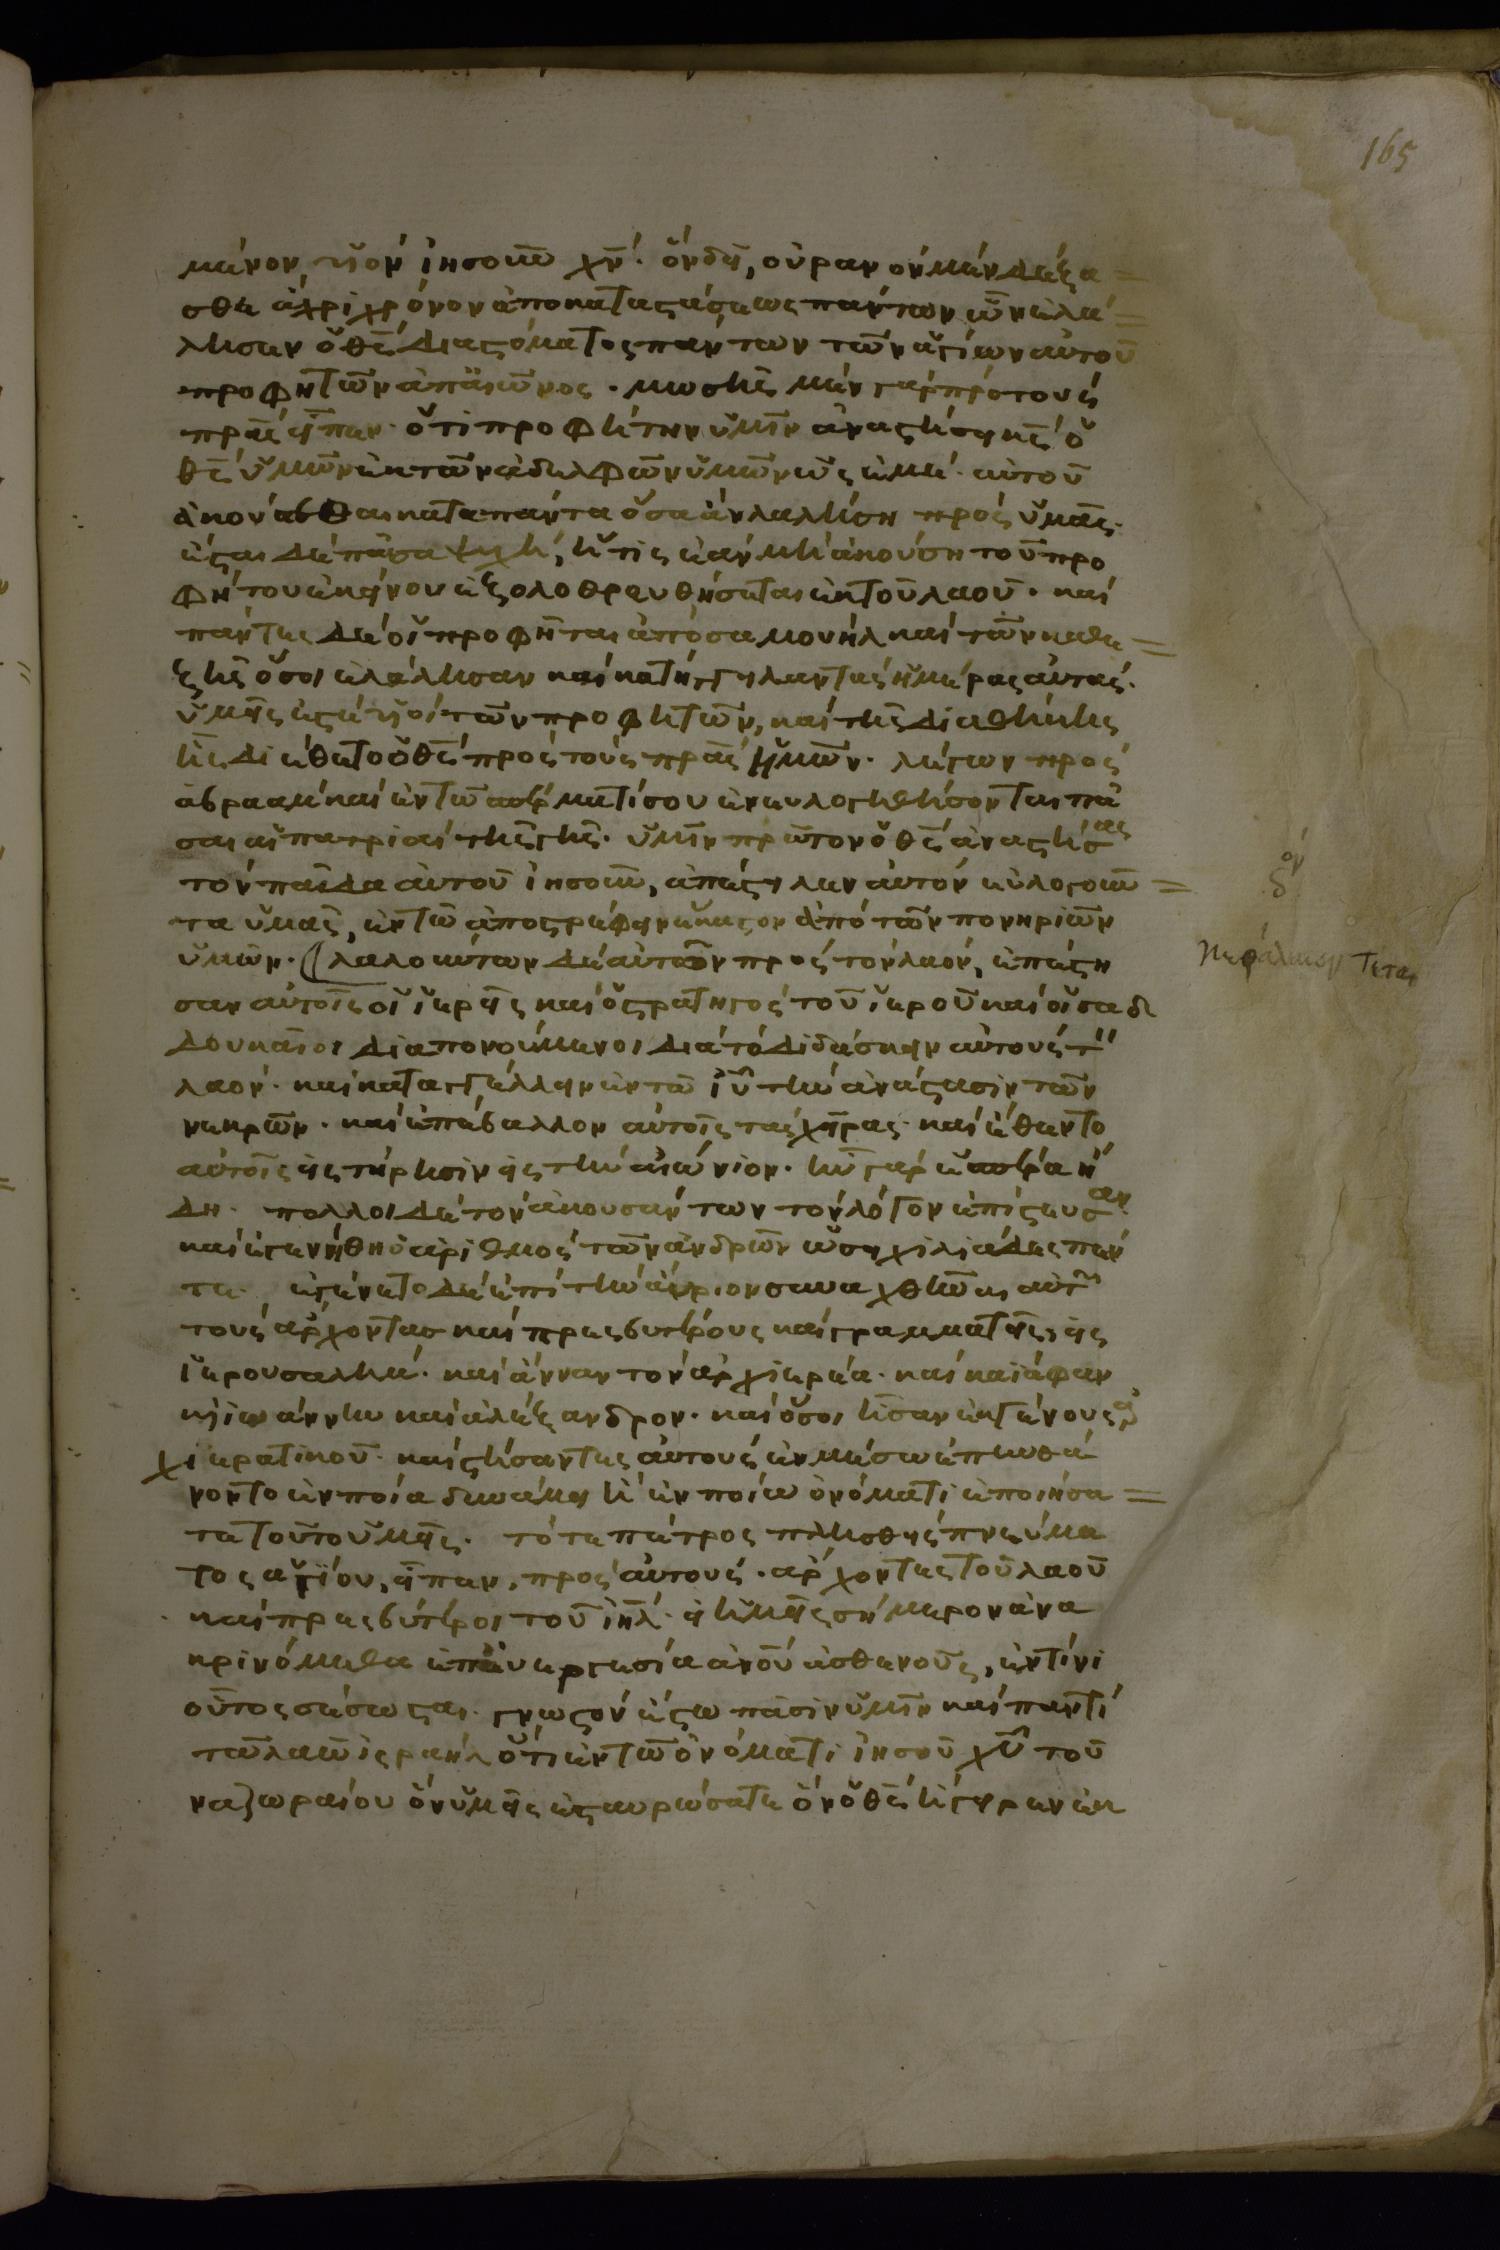 165
μένον υἱὸν ἰησοῦν χν́. ὃν δεῖ, οὐρανὸν μὲν δέξα
σθε ἄχρι χρόνον ἀποκαταστάσεως πάντων ὧν ἐλά
λησεν ὁ θς̄ διαστόματος πάντων τῶν ἁγίων αὐτοῦ
προφητῶν ἀπαἰῶνος. μωσῆς μὲν γὰρ πρὸς τοὺς
πρας̄ εἶπεν. ὅτι προφήτην ὑμῖν ἀναστήσει κς̄ ὁ
θς̄ ὑμῶν ἐκ τῶν ἀδελφῶν ὑμῶν ὡς ἐμέ. αὐτοῦ
ἀκούεσθαι κατα πάντα ὅσα ἂν λαλήση πρὸς ὑμᾶς.
ἔσται δὲ πᾶσα ψυχή, ἥτις ἐὰν μὴ ἀκούση τοῦ προ
φήτου ἐκείνου ἐξολοθρευθήσεται ἐκ τοῦ λαοῦ. καὶ
πάντες δὲ οἱ προφῆται ἀπὸ σαμουὴλ καὶ τῶν καθε
ξῆς ὅσοι ἐλάλησαν καὶ κατήγγειλαν τὰς ἡμέρας αὐτάς.
ὑμεῖς ἐστέ υἱοὶ τῶν προφητῶν, καὶ τῆς διαθήκης
ἧς διέθετο ὁ θς̄ πρὸς τοὺς πρας̄ ἡμῶν. λέγων πρὸς
ἀβραάμ καὶ ἐν τῶ σπέρματί σου ἐνευλογηθήσονται πᾶ
σαι αἱ πατριαὶ τῆς γῆς. ὑμῖν πρῶτον ὁ θς̄ ἀναστήσας
τὸν παῖδα αὐτοῦ ἰησοῦν, ἀπέστειλεν αὐτὸν εὐλογοῦν
τα ὑμᾶς, ἐν τῶ ἀποστρέφειν ἕκαστον ἀπὸ τῶν πονηριῶν
ὑμῶν. λαλούντων δὲ αὐτῶν πρὸς τὸν λαόν, ἐπέστη
σαν αὐτοῖς οἱ ἱερεῖς καὶ ὁ στρατηγὸς τοῦ ἱεροῦ καὶ οἱ σαδ
δουκαῖοι διαπονούμενοι διὰ τὸ διδάσκειν αὐτοὺς τὸν
λαόν. καὶ καταγγέλλειν ἐν τῶ ἰῦ τὴν ἀνάστασιν τῶν
νεκρῶν. καὶ ἐπέβαλλον αὐτοῖς τὰς χεῖρας. καὶ ἔθεντο
αὐτοῖς εἰς τήρησιν εἰς τὴν αἰώνιον. ἦν γὰρ ἑσπέρα ἤ
δη. πολλοι δὲ τὸν ἀκουσάντων τὸν λόγον ἐπίστευσαν.
καὶ ἐγενήθη ὁ ἀριθμὸς τῶν ἀνδρῶν ὡσεὶ χιλιάδες πέν
τε. ἐγένετο δὲ ἐπὶ τὴν ἄυριον συναχθῆναι αὐτῶν
τοὺς ἄρχοντας καὶ πρεσβυτέρους καὶ γραμματεῖς, εἰς
ἱερουσαλήμ. καὶ ἄνναν τὸν ἀρχιερέα. καὶ καϊάφαν
κ̀ ἰωάννην καὶ ἀλέξανδρον. καὶ ὅσοι ἦσαν ἐκ γένους ἀρ
χιερατικοῦ. καὶ στήσαντες αὐτοὺς ἐν μέσω ἐπυνθά
νοντο ἐν ποία δυνάμει ἢ ἐν ποίω ὀνόματι ἐποιήσα
τε τοῦτο ὑμεῖς. τότε πέτρος πλησθεὶς πνεύμα
τος ἁγίου, εἶπεν, πρὸς αὐτούς. ἄρχοντες τοῦ λαοῦ
καὶ πρεσβύτεροι τοῦ ἰηλ̄. εἰ ἡμεῖς σήμερον ἀνα
κρινόμεθα ἐπὶ εὐεργεσία ἀνού ἀσθενοῦς, ἐν τίνι
οὗτος σέσωσται. γνωστὸν ἔστω πᾶσιν ὑμῖν καὶ παντὶ
τῶ λαῶ ἰσραὴλ ὅτι ἐν τῶ ὀνόματι ἰησοῦ χῦ τοῦ
ναζωραίου ὃν ὑμεῖς ἐσταυρώσατε ὃν ὁ θς̄ ἤγειρεν ἐκ
δον
κεφάλαιον τέταρ